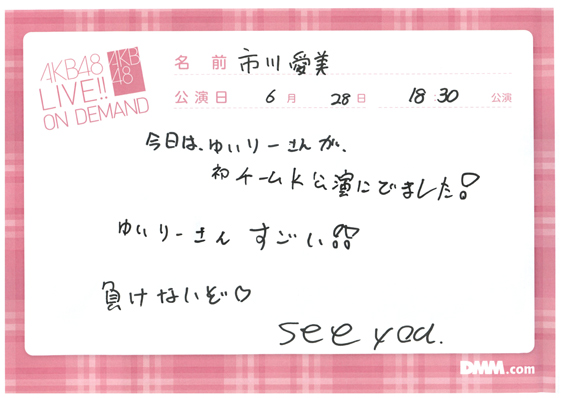 AKB48
LIVE!!
ON DEMAND
AKB
48
名 前 市川愛美
公演日 6月 28日 18:30 公演
今日は、ゆいりーさんが、
初チームK公演にでました!
ゆいりーさん すごい!!
負けないぞ♡
see you.
DMM.com